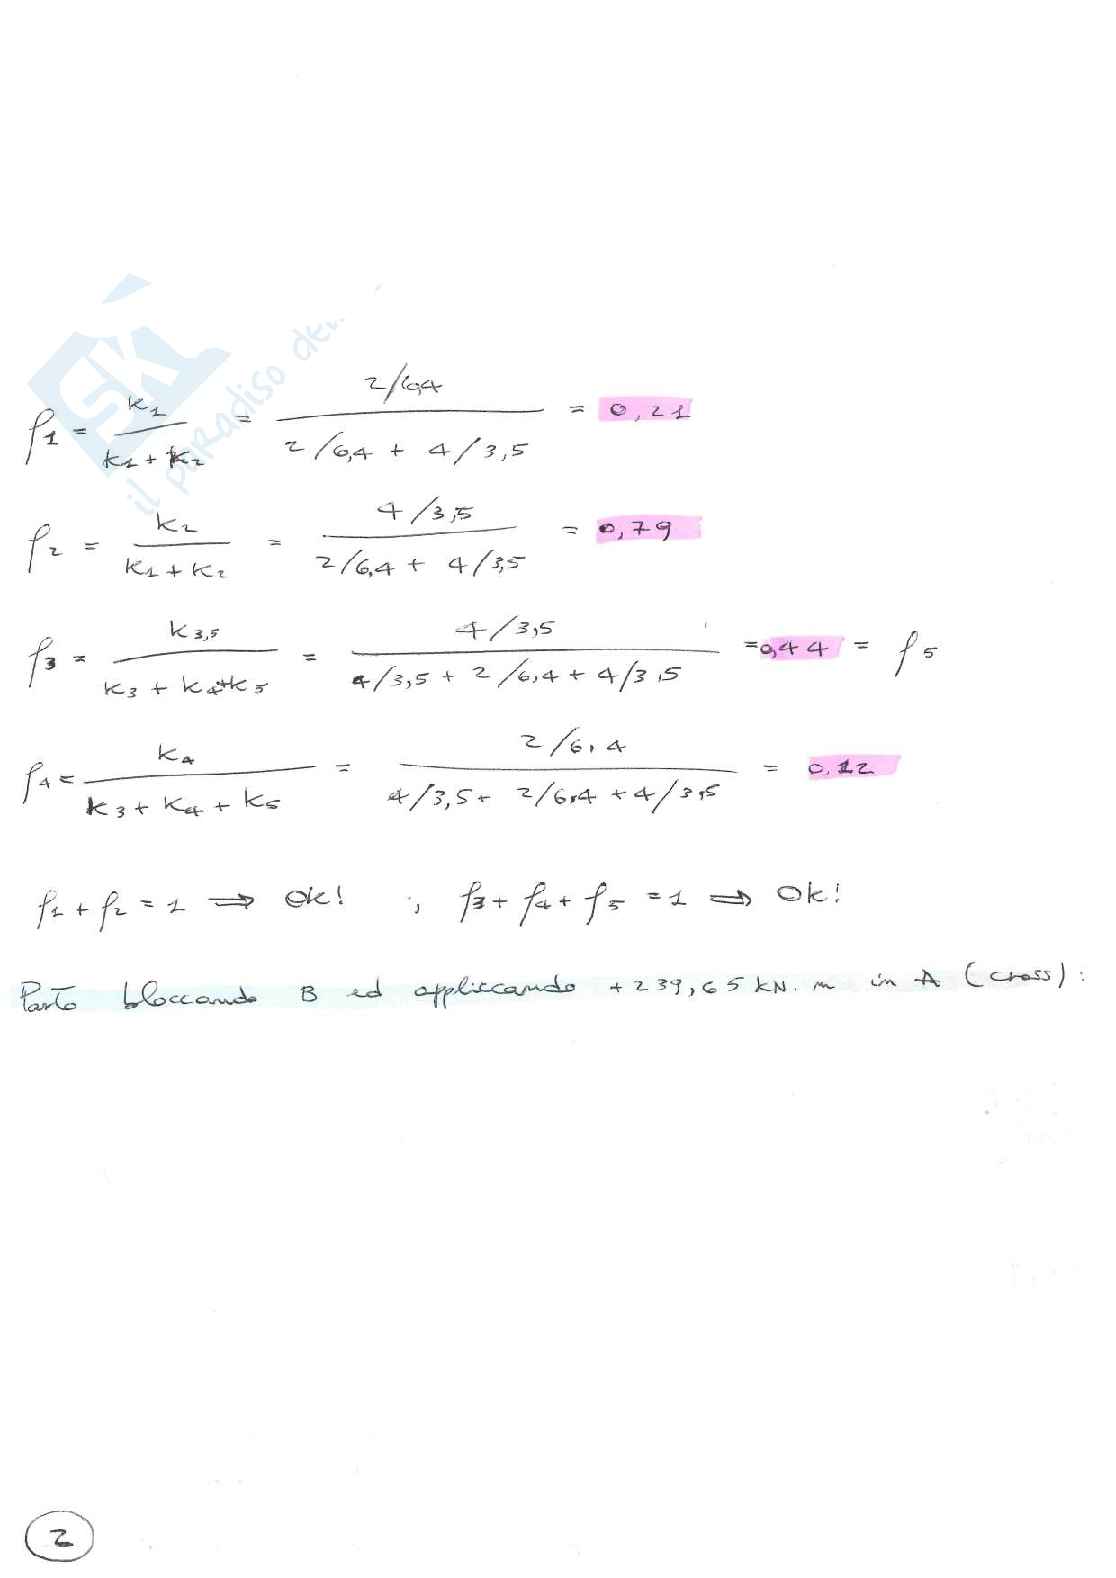 SK
il paradiso del
ρ1 = K1 / (K1 + K2) = (2/6,4) / (2/6,4 + 4/3,5) = 0,21
ρ2 = K2 / (K1 + K2) = (4/3,5) / (2/6,4 + 4/3,5) = 0,79
ρ3 = K3,5 / (K3 + K4 + K5) = (4/3,5) / (4/3,5 + 2/6,4 + 4/3,5) = 0,44 = ρ5
ρ4 = K4 / (K3 + K4 + K5) = (2/6,4) / (4/3,5 + 2/6,4 + 4/3,5) = 0,12
ρ1 + ρ2 = 1 ⇒ ok! ; ρ3 + ρ4 + ρ5 = 1 ⇒ Ok!
Parto bloccando B ed applicando +239,65 kN.m in A (cross):
2